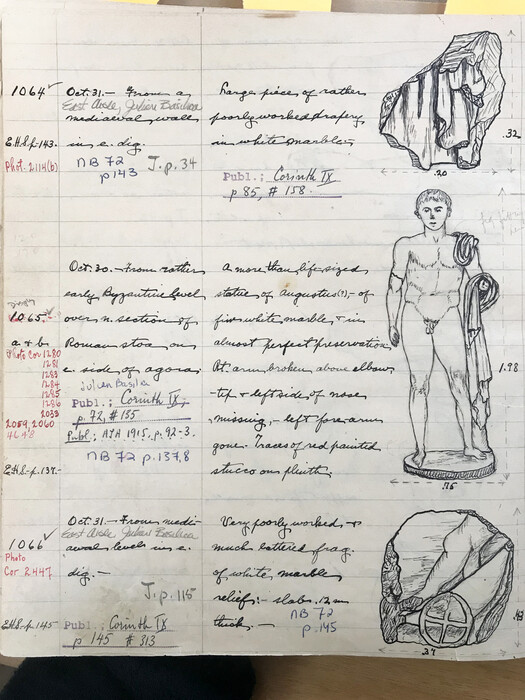 1064
E.H.S. p. 143.
Phot. 2114(b)
Oct. 31. - From a
East Aisle, Julian Basilica
mediaeval wall
in e. dig.
NB 72
p 143
J. p. 34
Large piece of rather
poorly worked drapery
in white marble.
Publ.: Corinth IX
p 85, # 158.
.32
.20
1065
a + b
Photo Cor 1280
1281
1283
1284
1285
1286
2033
2059, 2060
E.H.S. p. 137.
Oct. 30. - From rather
early Byzantine level
over n. section of
Roman stoa on
e. side of agora.
Julian Basilica
Publ.: Corinth IX,
p. 72, # 135
Publ.: AJA 1915, p. 92-3.
NB 72 p. 137,8
A more than life-sized
statue of Augustus(?), - of
fine white marble & in
almost perfect preservation.
Rt. arm broken above elbow
- tip & left side of nose
missing, - left forearm
gone. Traces of red painted
stucco on plinth.
1.98
.75
1066
Photo
Cor 2447
E.H.S. p. 145
Oct. 31. - From medi-
East Aisle, Julian Basilica
aeval level in e.
dig. -
J. p. 115
Publ.: Corinth IX
p 145 # 313
Very poorly worked, &
much battered frag.
of white marble
relief: - slab .12 m
thick. -
NB 72
p. 145
.43
.37